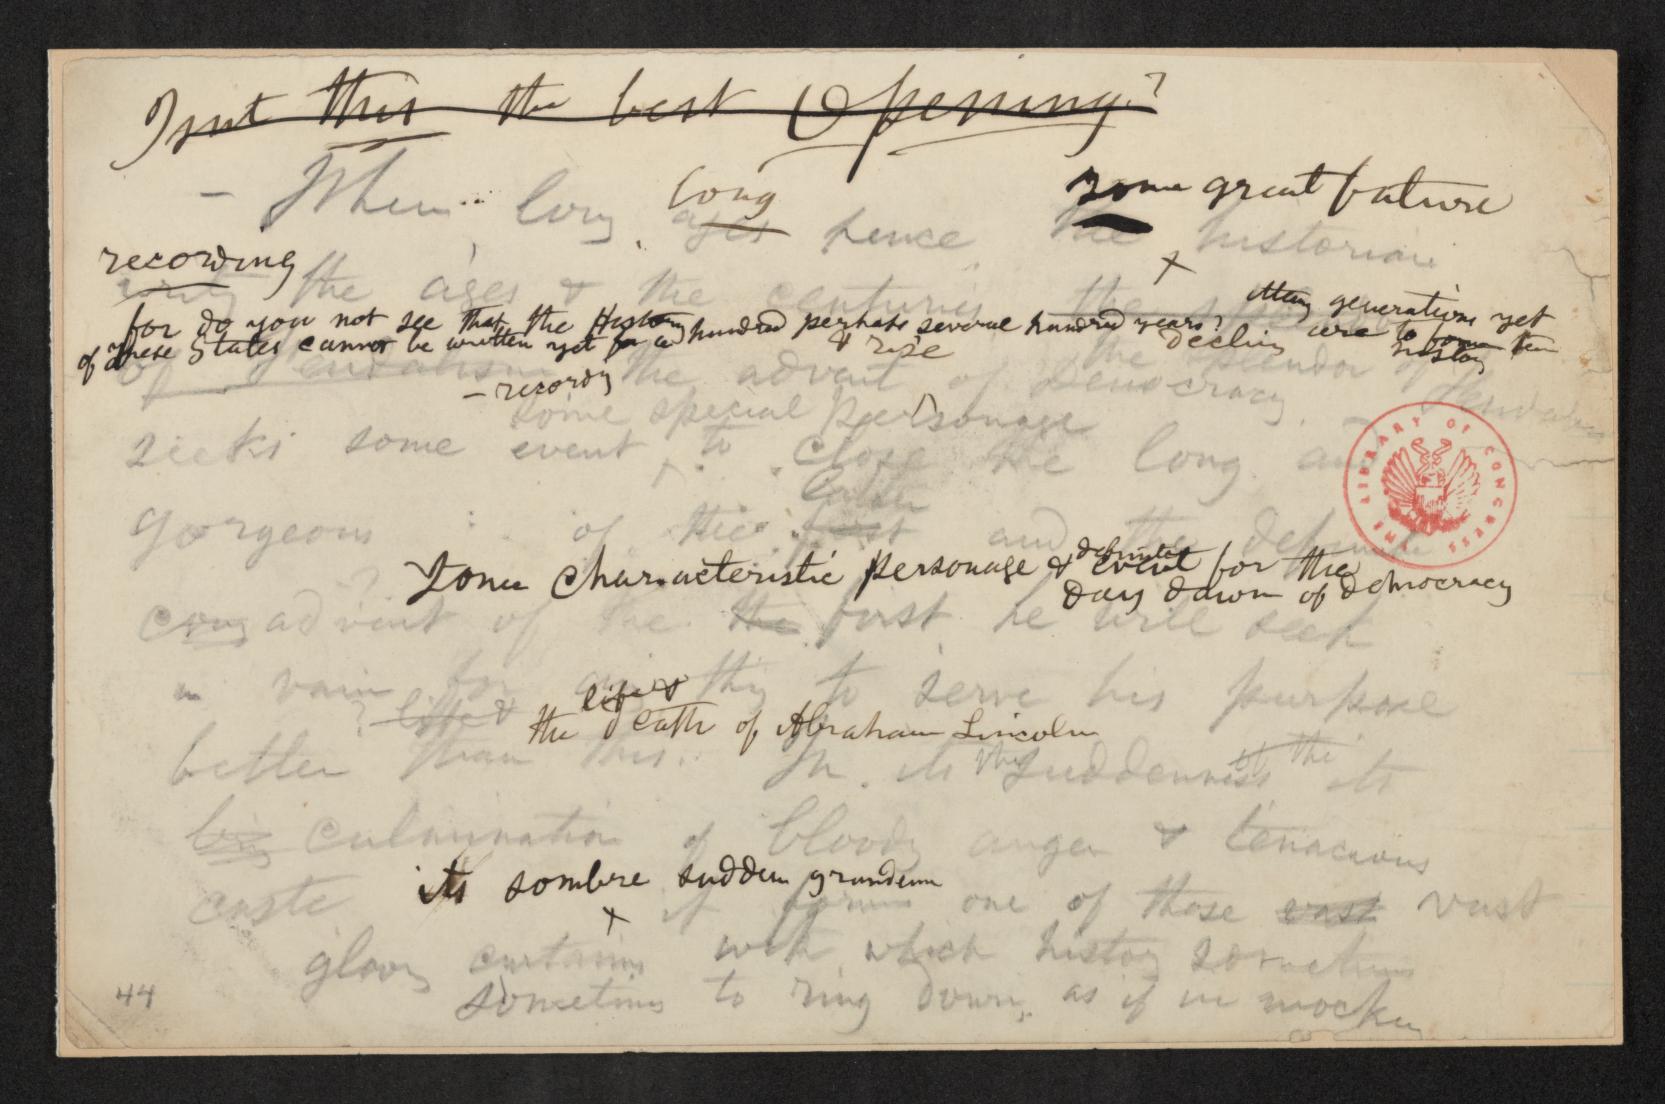 Isnt this the best Opening?
long some great future
— When long ages hence the historian
recording
the ages & the centuries
many generations yet
for do you not see that the History hundred perhaps several hundred years?
of These States cannot be written yet for a & rise declin are to
history
the splendor of
of Feudalism the advent of Democracy
— recordg
some special Personage
seeks some event to close the long and
latter
gorgeous of the first and the definite
Some characteristic personage & definite event for the
day dawn of democracy
advent of the the first he will seek
in vain for any thg to serve his purpose
life &
life & the death of Abraham Lincoln
better than this. In its the suddenness of the its
culmination of bloody anger & tenacious
its sombre sudden grandeur
caste it forms one of those vast vast
gloomy curtains with which history sometimes
sometimes to ring down, as if in mockery
44
THE LIBRARY OF CONGRESS